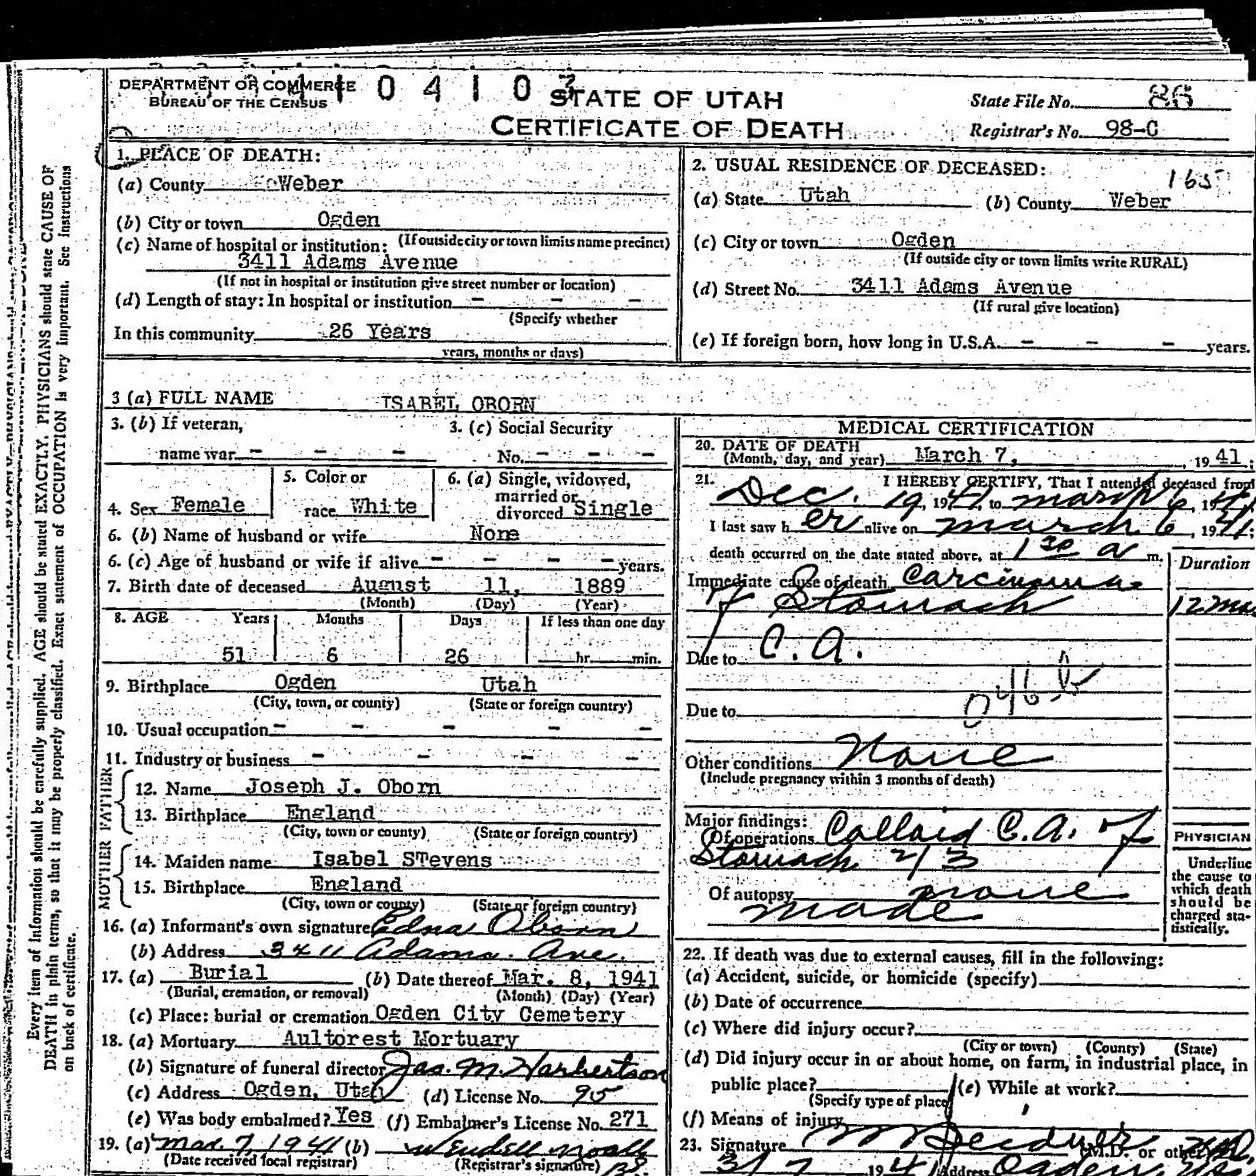 DEPARTMENT OF COMMERCE
BUREAU OF THE CENSUS
4104103
STATE OF UTAH
CERTIFICATE OF DEATH
State File No. 86
Registrar's No. 98-C
1. PLACE OF DEATH:
(a) County Weber
(b) City or town Ogden
(c) Name of hospital or institution: (If outside city or town limits name precinct)
3411 Adams Avenue
(If not in hospital or institution give street number or location)
(d) Length of stay: In hospital or institution - - -
(Specify whether
In this community 26 Years
years, months or days)
2. USUAL RESIDENCE OF DECEASED:
165
(a) State Utah (b) County Weber
(c) City or town Ogden
(If outside city or town limits write RURAL)
(d) Street No. 3411 Adams Avenue
(If rural give location)
(e) If foreign born, how long in U.S.A. - - - years.
3 (a) FULL NAME ISABEL OBORN
3. (b) If veteran, 3. (c) Social Security
name war - - - No. - - -
4. Sex Female
5. Color or
race White
6. (a) Single, widowed,
married or
divorced Single
6. (b) Name of husband or wife None
6. (c) Age of husband or wife if alive - - - - years.
7. Birth date of deceased August 11, 1889
(Month) (Day) (Year)
8. AGE Years Months Days If less than one day
51 6 26 hr. min.
9. Birthplace Ogden Utah
(City, town, or county) (State or foreign country)
10. Usual occupation - - - - -
11. Industry or business - - - - -
FATHER
12. Name Joseph J. Oborn
13. Birthplace England
(City, town or county) (State or foreign country)
MOTHER
14. Maiden name Isabel STevens
15. Birthplace England
(City, town or county) (State or foreign country)
16. (a) Informant's own signature Edna Oborn
(b) Address 3411 Adams Ave.
17. (a) Burial (b) Date thereof Mar. 8, 1941
(Burial, cremation, or removal) (Month) (Day) (Year)
(c) Place: burial or cremation Ogden City Cemetery
18. (a) Mortuary Aultorest Mortuary
(b) Signature of funeral director Jas. M Harbertson
(c) Address Ogden, Utah (d) License No. 95
(e) Was body embalmed? Yes (f) Embalmer's License No. 271
19. (a) Mar. 7, 1941 (b) Wendell Noall
(Date received local registrar) (Registrar's signature)
MEDICAL CERTIFICATION
20. DATE OF DEATH
(Month, day, and year) March 7, 1941;
21. I HEREBY CERTIFY, That I attended deceased from
Dec. 19, 1941 to march 6, 1941
I last saw h er alive on march 6, 1941;
death occurred on the date stated above, at 1 30 a m.
Duration
Immediate cause of death Carcinoma
of Stomach 12 mos
Due to C. A.
046-b
Due to
Other conditions None
(Include pregnancy within 3 months of death)
Major findings:
Of operations Colloid C.A. of
Stomach 2/3
Of autopsy none
made
PHYSICIAN
Underline
the cause to
which death
should be
charged sta-
tistically.
22. If death was due to external causes, fill in the following:
(a) Accident, suicide, or homicide (specify)
(b) Date of occurrence
(c) Where did injury occur?
(City or town) (County) (State)
(d) Did injury occur in or about home, on farm, in industrial place, in
public place? (e) While at work?
(Specify type of place)
(f) Means of injury
23. Signature (M.D. or other)
3/7 1941 Address Ogden
Every item of information should be carefully supplied. AGE should be stated EXACTLY. PHYSICIANS should state CAUSE OF
DEATH in plain terms, so that it may be properly classified. Exact statement of OCCUPATION is very important. See instructions
on back of certificate.